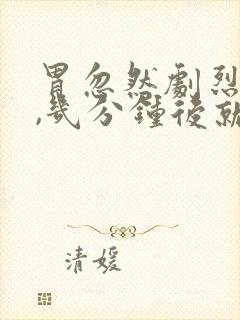 胃忽然劇烈
,幾分鐘後就
清媛